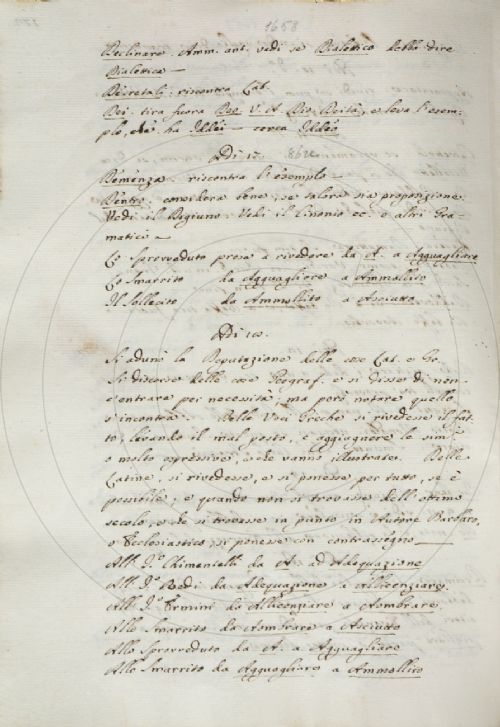 1658
Declinare. Amm. ant. vedi se Dialettico debba dire
Dialettica —
Decretali; riscontra Lat.
Dei. tira fuora Deo V. A. Dio. Deità, e leva l'esem-
plo, che ha Iddei — cerca Iddeo
Adì
Demenza. riscontra l'esemplo —
Dentro; considera bene, se talora sia preposizione.
Vedi il Pegiuno. Vedi il Cinonio ec. e altri Gra-
matici —
Lo Sprovveduto prese a rivedere da A. a Agguagliare
Lo Smarrito da Agguagliare a Ammollito
Il Sollecito da Ammollito a Asciutto
Adì
Si adunò la Deputazione delle cose Lat. e
Si discorse delle cose Geograf. e si disse di non
c'entrare per necessità; ma però notare quello
s'incontra. Delle Voci Greche si rivedesse il fat-
to, levando il mal posto, e aggiugnere le
o molto espressive, o che vanno illustrate. Delle
Latine, si rivedesse, e si ponesse per tutto, se è
possibile; e quando non si trovasse dell'ottimo
secolo, e che si trovasse in punto in Autore Barbaro,
o Ecclesiastico, si ponesse con contrassegno —
All' Chimentelli da A. ad Adequazione
All' Redi da Adequazione a Allicenziare.
All' Ermini da Allicenziare a Aombrare.
Allo Smarrito da Aombrare a Asciutto
Allo Sprovveduto da A. a Agguagliare
Allo Smarrito da Agguagliare a Ammollito